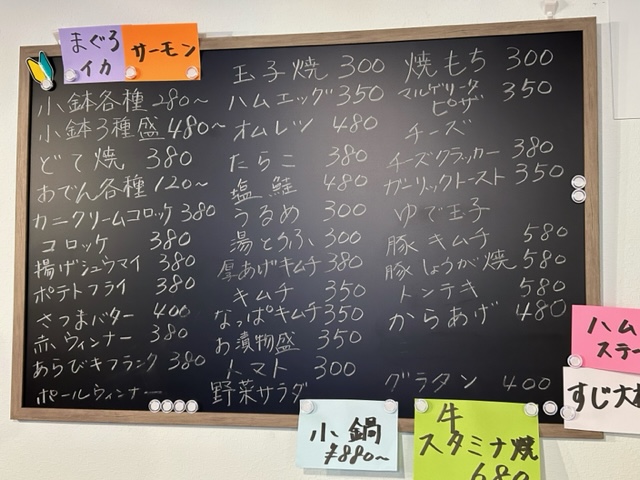 まぐろ
イカ
サーモン
小鉢各種 280〜
小鉢3種盛 480〜
どて焼 380
おでん各種 120〜
カニクリームコロッケ 380
コロッケ 380
揚げシュウマイ 380
ポテトフライ 380
さつまバター 400
赤ウィンナー 380
あらびきフランク 380
ポールウィンナー
玉子焼 300
ハムエッグ 350
オムレツ 480
たらこ 380
塩鮭 480
うるめ 300
湯とうふ 300
厚あげキムチ 380
キムチ 350
なっぱキムチ 350
お漬物盛 350
トマト 300
野菜サラダ
焼もち 300
マルゲリータ
ピザ 350
チーズ
チーズクラッカー 380
ガーリックトースト 350
ゆで玉子
豚キムチ 580
豚しょうが焼 580
トンテキ 580
からあげ 480
グラタン 400
小鍋
¥880〜
牛
スタミナ焼
680
ハム
ステー
すじ大根